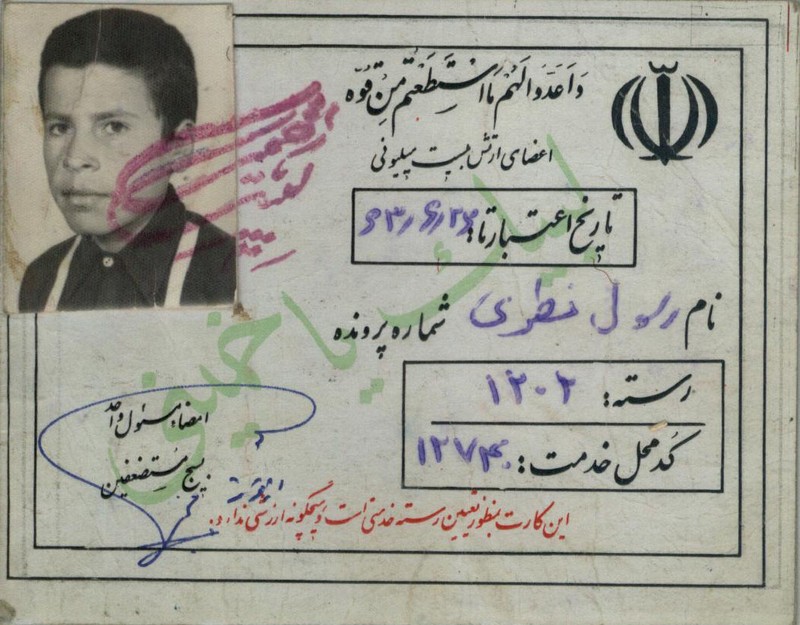 وَاَعِدُّوا لَهُم مَا اسْتَطَعْتُم مِن قُوّه
اعضای ارتش بیست میلیونی
تاریخ اعتبار تا: ۶۳/۶/۲۶
نام رسول نظری شماره پرونده
رسته: ۱۲۰۲
کُد محل خدمت: ۱۲۷۴۰
لبیک یا خمینی
امضاء مسئول واحد
بسیج مستضعفین
این کارت بمنظور تعیین رسته خدمتی است و هیچگونه ارزشی ندارد.